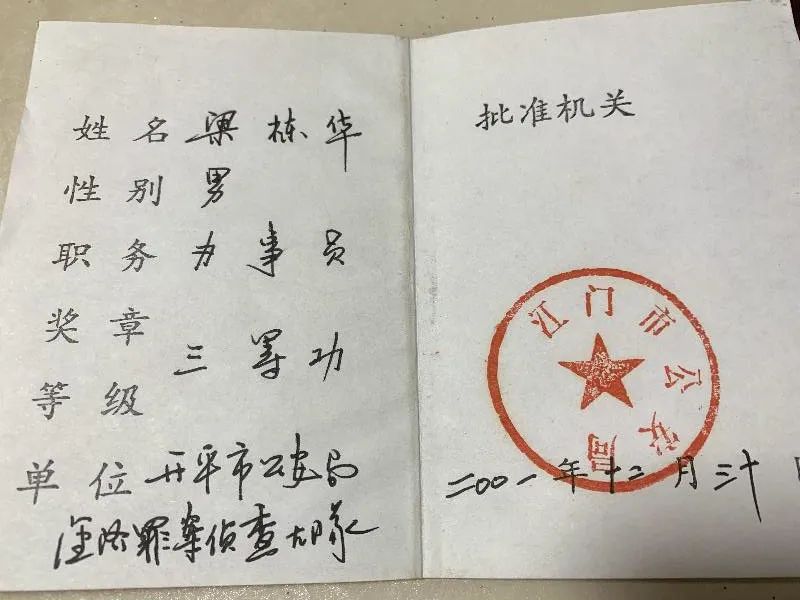 姓名 梁栋华
性别 男
职务 办事员
奖章
等级 三等功
单位 开平市公安局
经济罪案侦查大队
批准机关
江门市公安局
二00一年十二月三十日